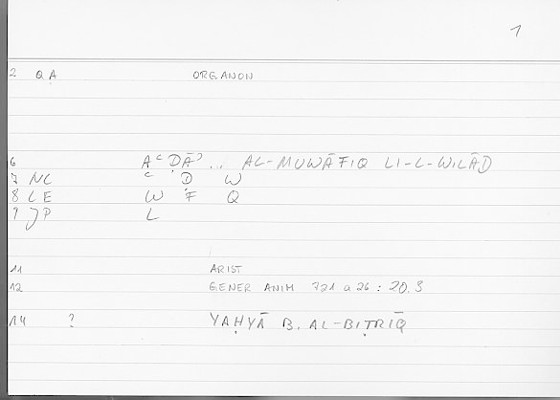 1
2 QA ORGANON
6 AʿḌĀʾ... AL-MUWĀFIQ LI-L-WILĀD
7 NC ʿ Ḍ W
8 LE W F Q
9 JP L
11 ARIST
12 GENER ANIM 721 a 26 : 20.3
14 ? YAḤYĀ B. AL-BIṬRĪQ